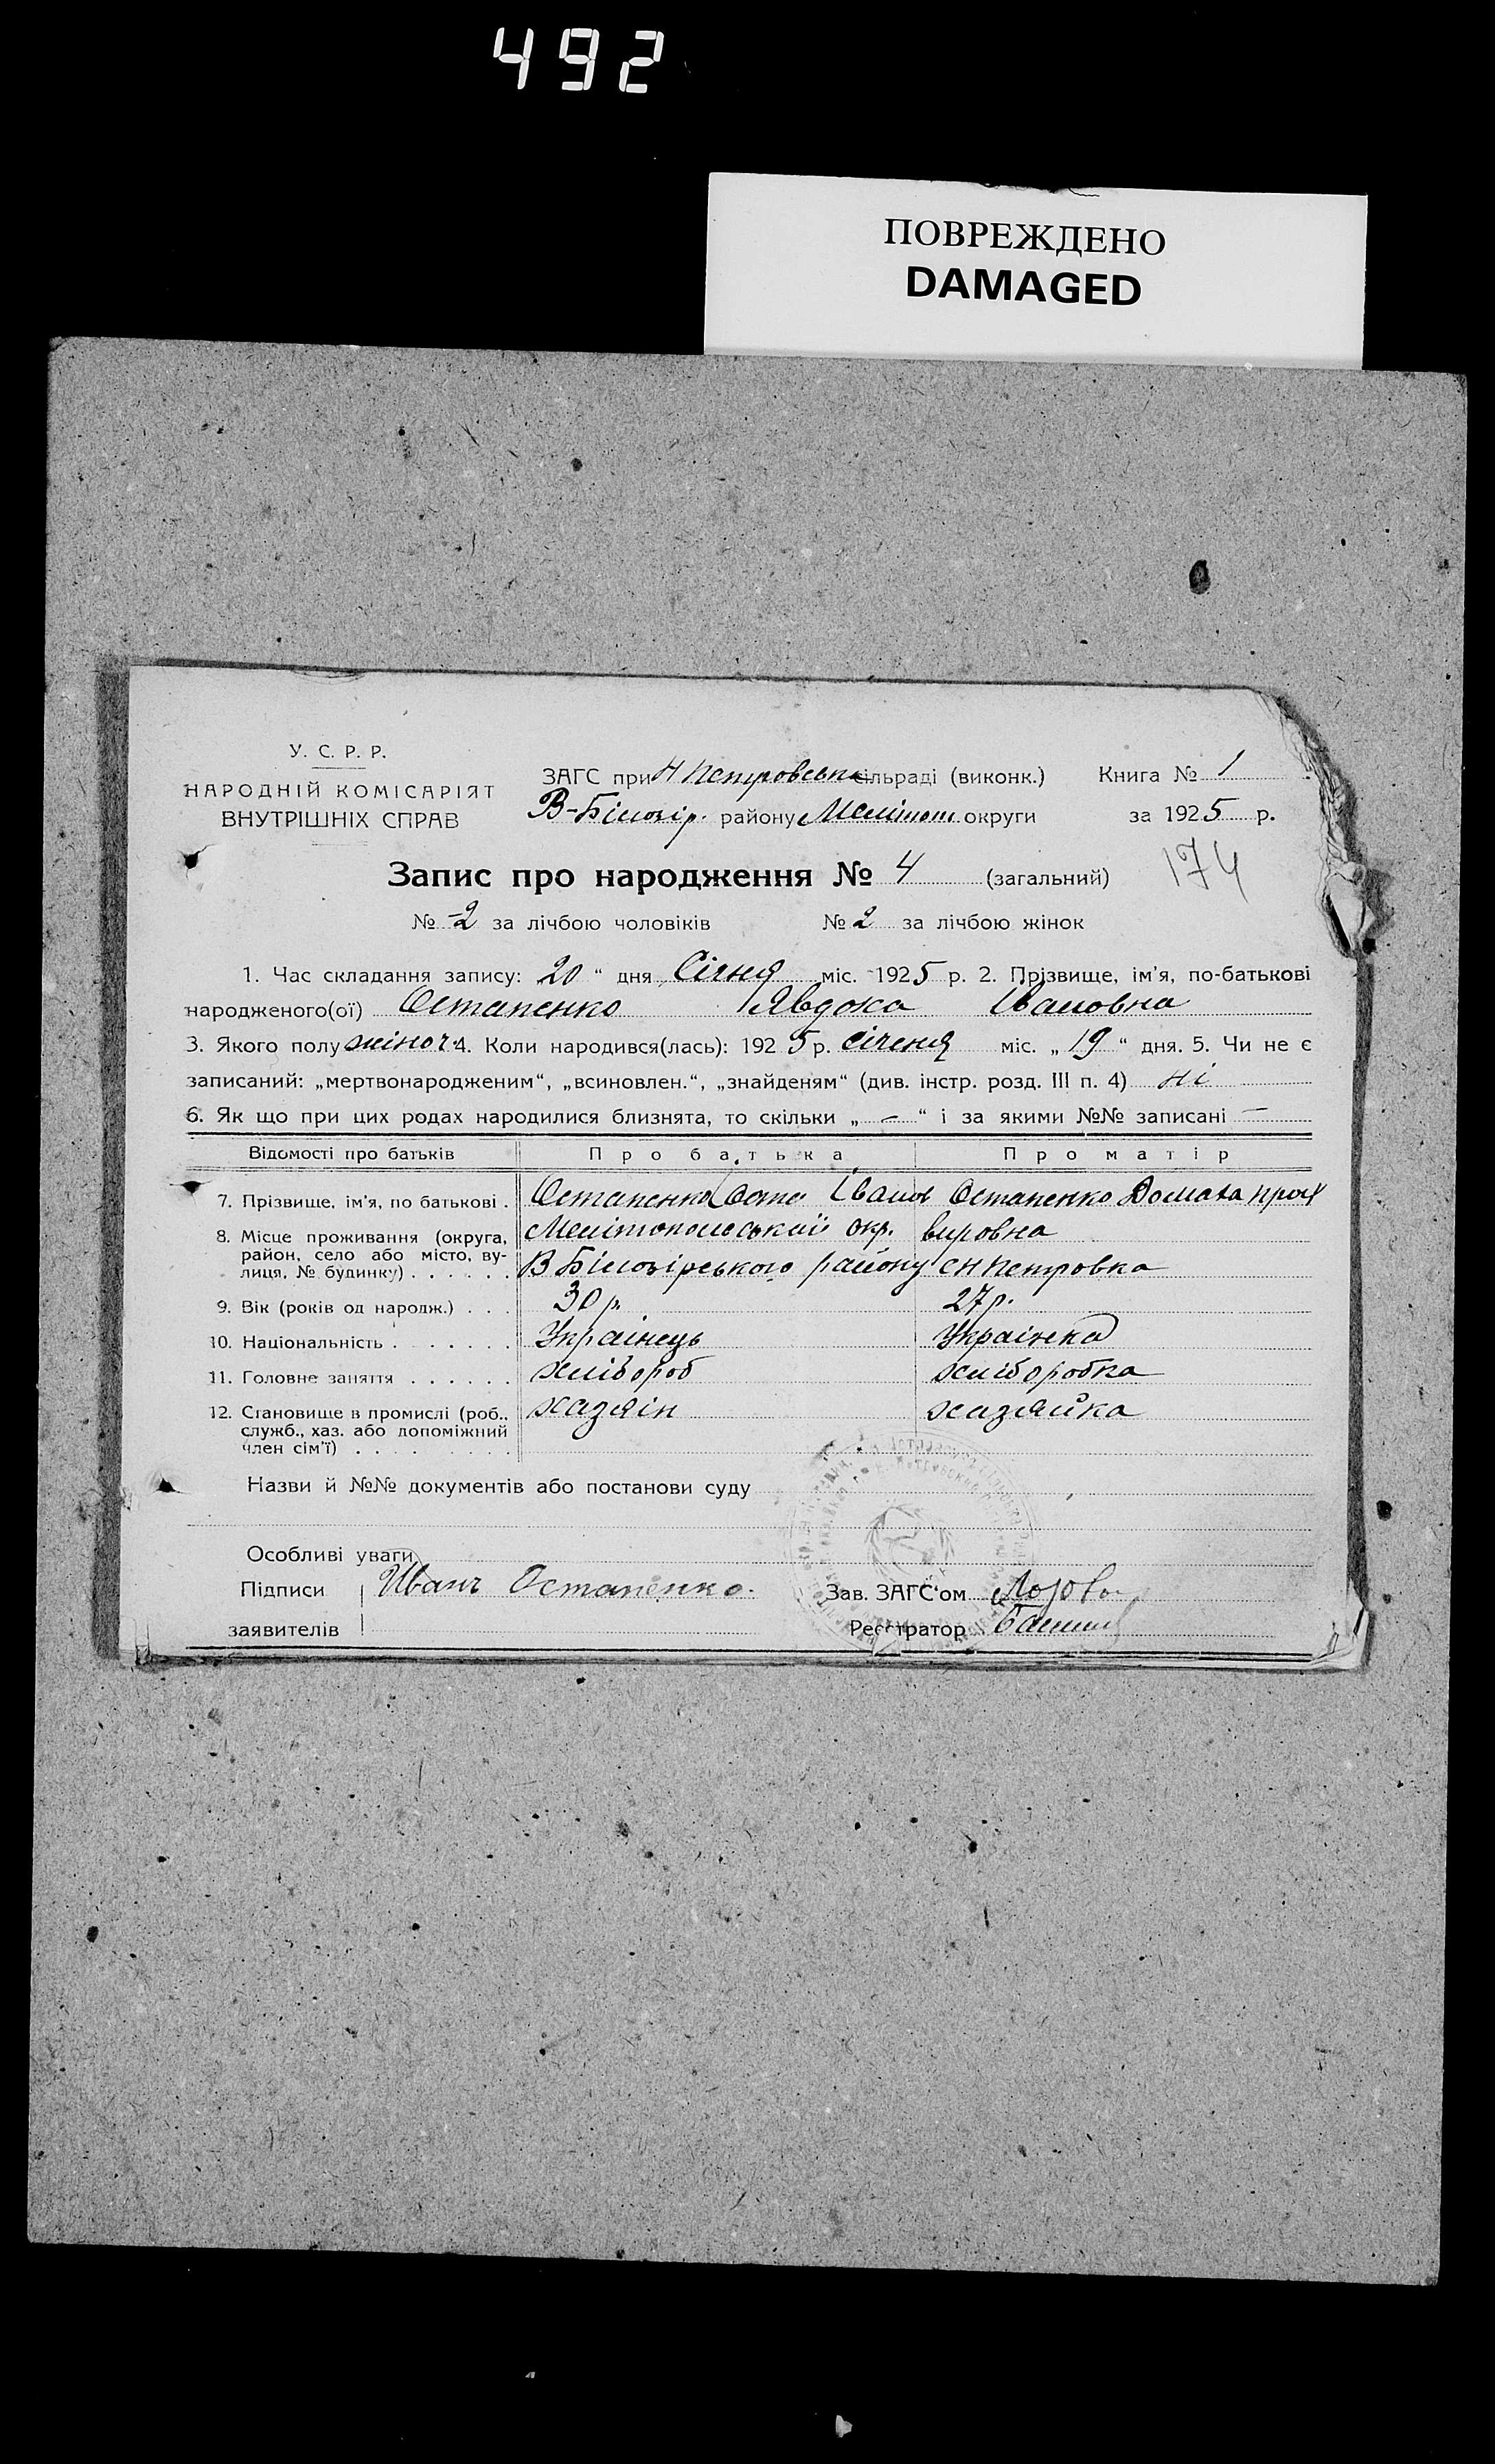 492
ПОВРЕЖДЕНО
DAMAGED
У. С. Р. Р.
НАРОДНІЙ КОМІСАРІЯТ
ВНУТРІШНІХ СПРАВ
ЗАГС при Н Петровськ сільраді (виконк.)
В-Білозір. району Меліт округи
Книга № 1
за 1925 р.
Запис про народження № 4 (загальний)
174
№ -2 за лічбою чоловіків № 2 за лічбою жінок
1. Час складання запису: 20 “ дня Січня міс. 1925 р. 2. Прізвище, ім’я, по-батькові
народженого(ої) Остапенко Явдоха Івановна
3. Якого полу жіноч. 4. Коли народився(лась): 1925 р. січеня міс. „ 19 “ дня. 5. Чи не є
записаний: „мертвонародженим“, „всиновлен.“, „знайденям“ (див. інстр. розд. III п. 4) ні
6. Як що при цих родах народилися близнята, то скільки „ — “ і за якими №№ записані —
Відомості про батьків Про батька Про матір
7. Прізвище, ім’я, по батькові . Остапенко Іванов Остапенко Домаха
8. Місце проживання (округа, Мелітопольськаї окр. вировна
район, село або місто, ву-
лиця, № будинку) . . . . . . В Білозірського району с Н Петровка
9. Вік (років од народж.) . . . 30 р. 27 р.
10. Національність . . . . . . . Українець Українка
11. Головне заняття . . . . . . хлібороб хліборобка
12. Становище в промислі (роб., хазяін хазяйка
служб., хаз. або допоміжний
член сім’ї) . . . . . . . . .
Назви й №№ документів або постанови суду
Особливі уваги
Підписи Иванъ Остапенко.
заявителів
Зав. ЗАГС’ом
Реєстратор